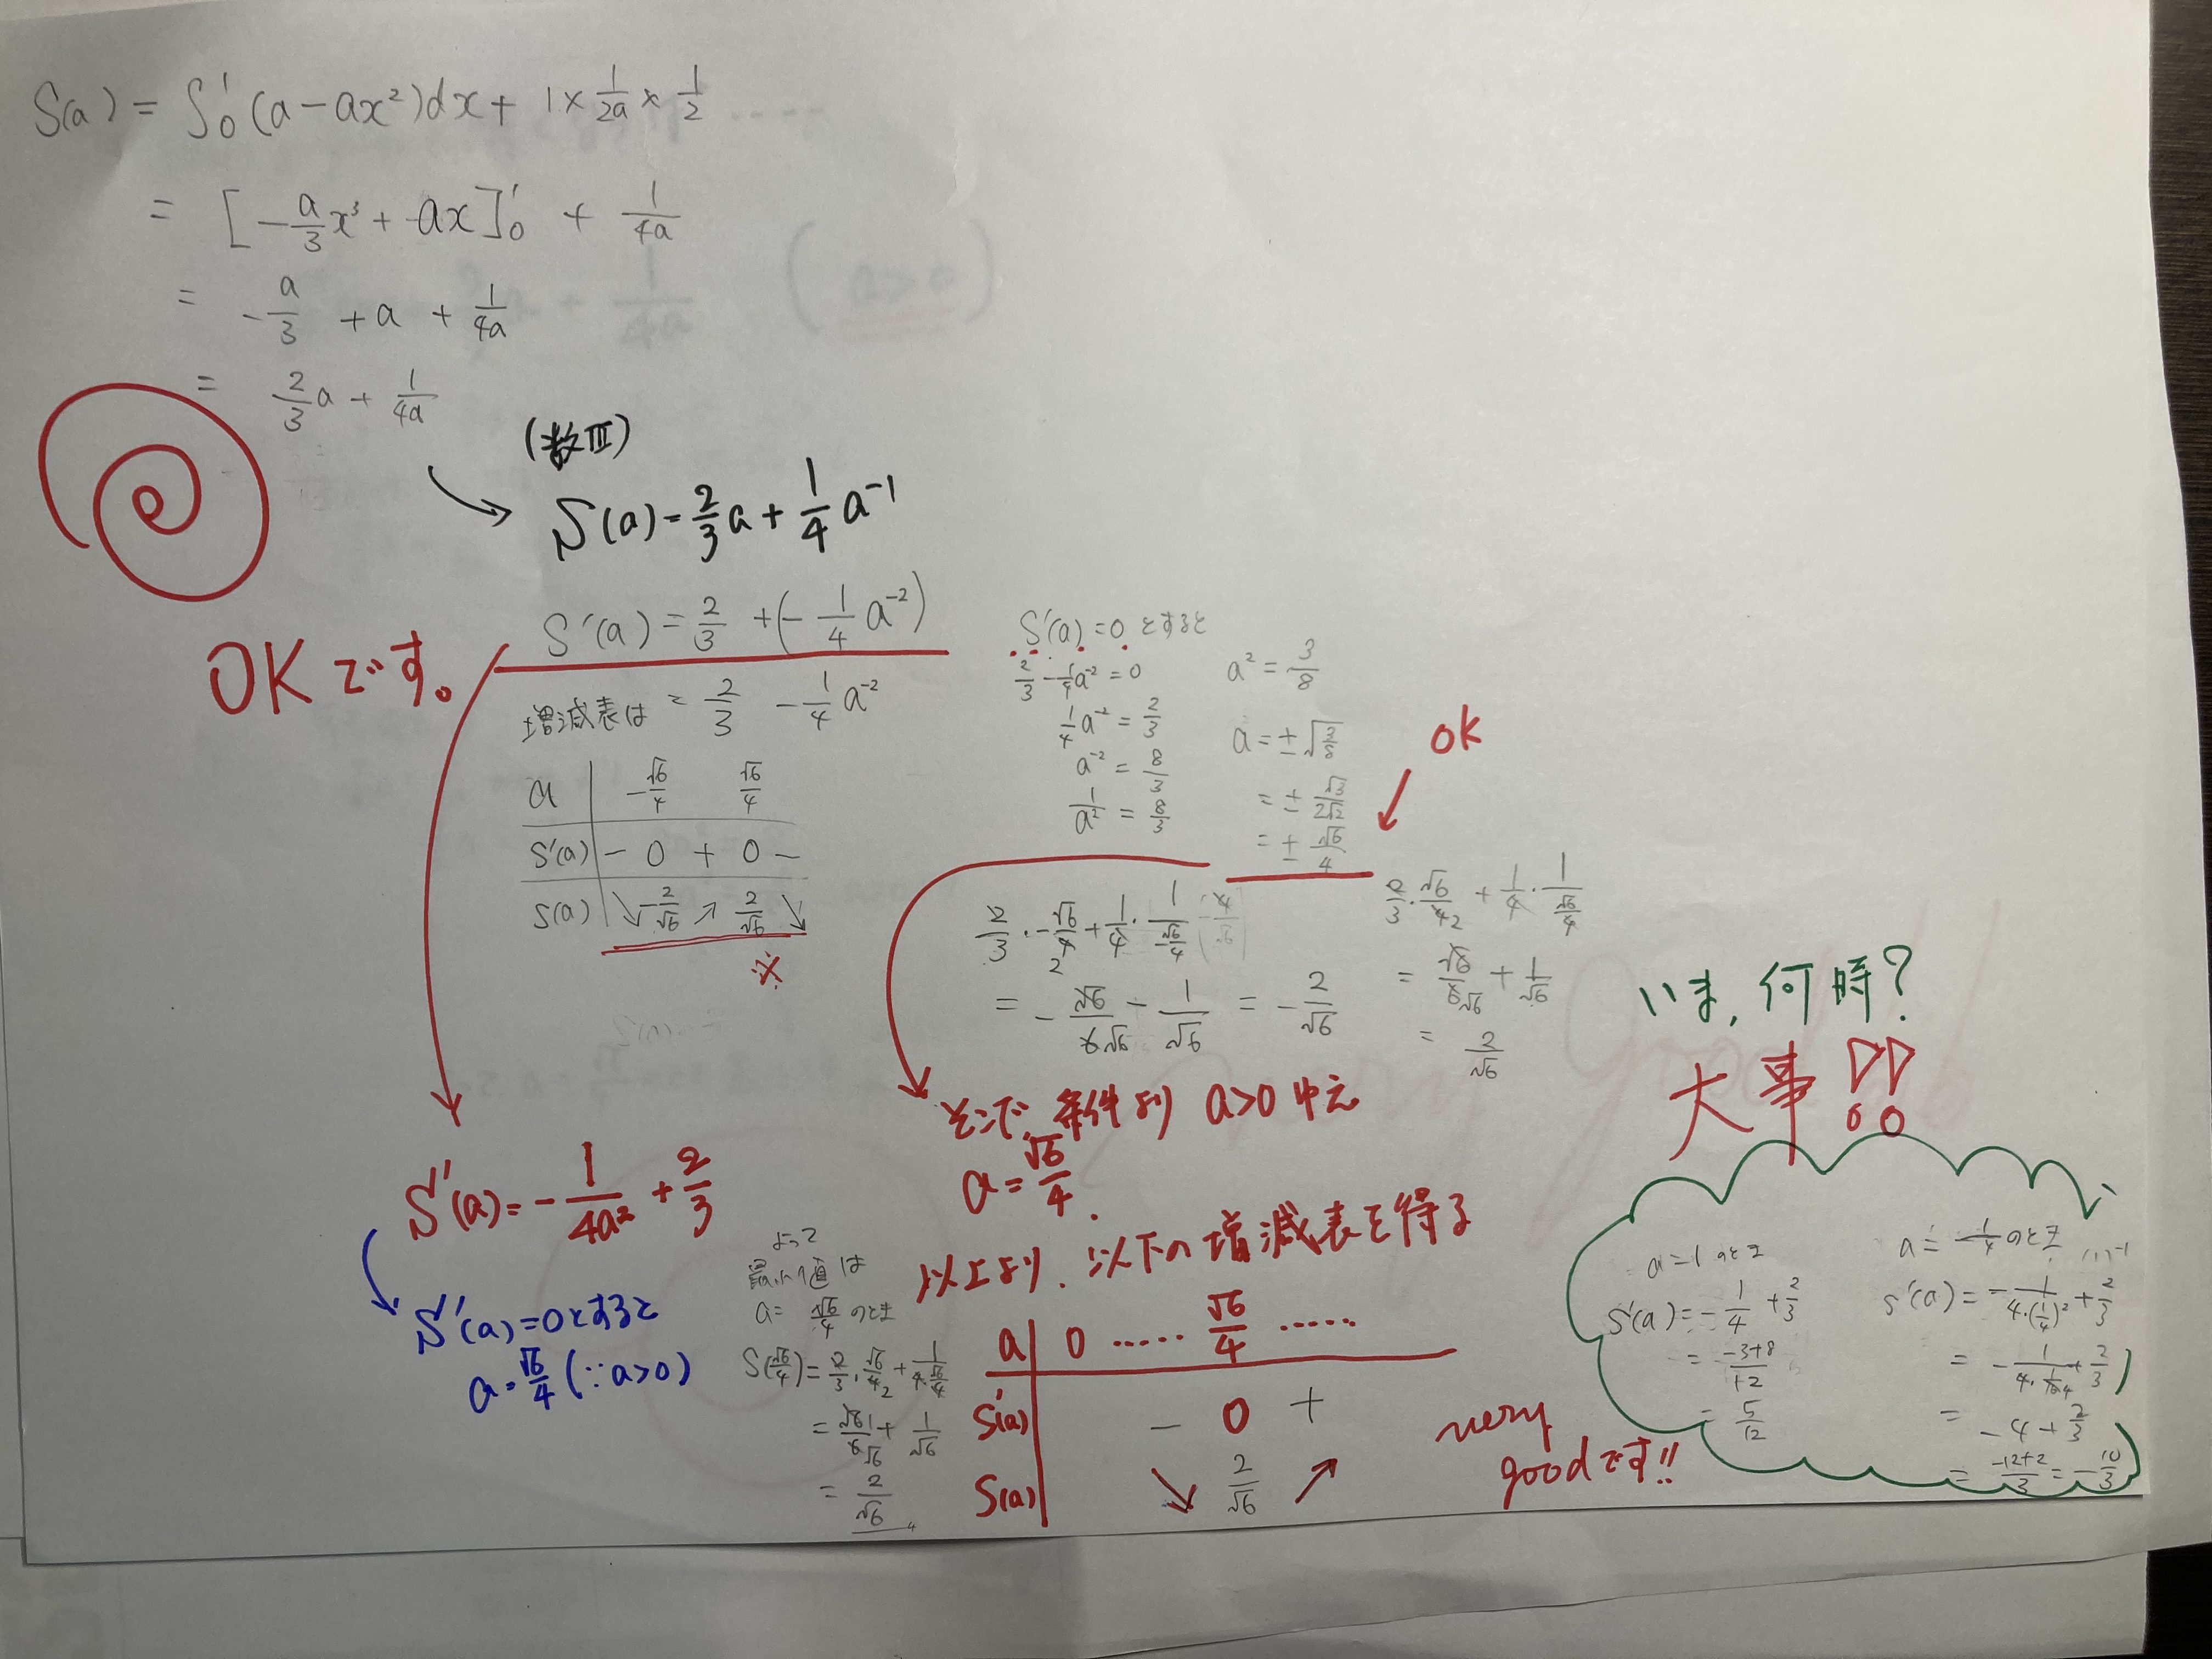 S(a) = ∫₀¹ (a - ax²)dx + 1 × 1/2a × 1/2
= [-a/3 x³ + ax]₀¹ + 1/4a
= -a/3 + a + 1/4a
= 2/3 a + 1/4a
(数Ⅲ)
S(a) = 2/3 a + 1/4 a⁻¹
OKです。
S'(a) = 2/3 + (-1/4 a⁻²)
= 2/3 - 1/4 a⁻²
増減表は
a | -√6/4 √6/4
S'(a) | - 0 + 0 -
S(a) | ↘ -2/√6 ↗ 2/√6 ↘
※
S'(a) = 0 とすると
2/3 - 1/4 a⁻² = 0
1/4 a⁻² = 2/3
a⁻² = 8/3
1/a² = 8/3
a² = 3/8
a = ±√3/8
= ± √3/2√2
= ± √6/4
OK
2/3 · -√6/4 + 1/4 · 1/-√6/4
= -√6/6 - 1/√6 = -2/√6
2/3 · √6/4 + 1/4 · 1/√6/4
= √6/6 + 1/√6
= 2/√6
S'(a) = -1/4a² + 2/3
S'(a) = 0とすると
a = √6/4 (∵ a>0)
そこで、条件より a>0 ゆえ
a = √6/4.
以上より、以下の増減表を得る
a | 0 …… √6/4 ……
S'(a) | - 0 +
S(a) | ↘ 2/√6 ↗
very
goodです!!
よって
最小値は
a = √6/4 のとき
S(√6/4) = 2/3 · √6/4 + 1/4·√6/4
= √6/6 + 1/√6
= 2/√6
いま、何時?
大事!!
a = 1 のとき
S'(a) = -1/4 + 2/3
= -3+8/12
= 5/12
a = 1/4 のとき
S'(a) = -1/4·(1/4)² + 2/3
= -1/4·1/16 + 2/3
= -4 + 2/3
= -12+2/3 = -10/3